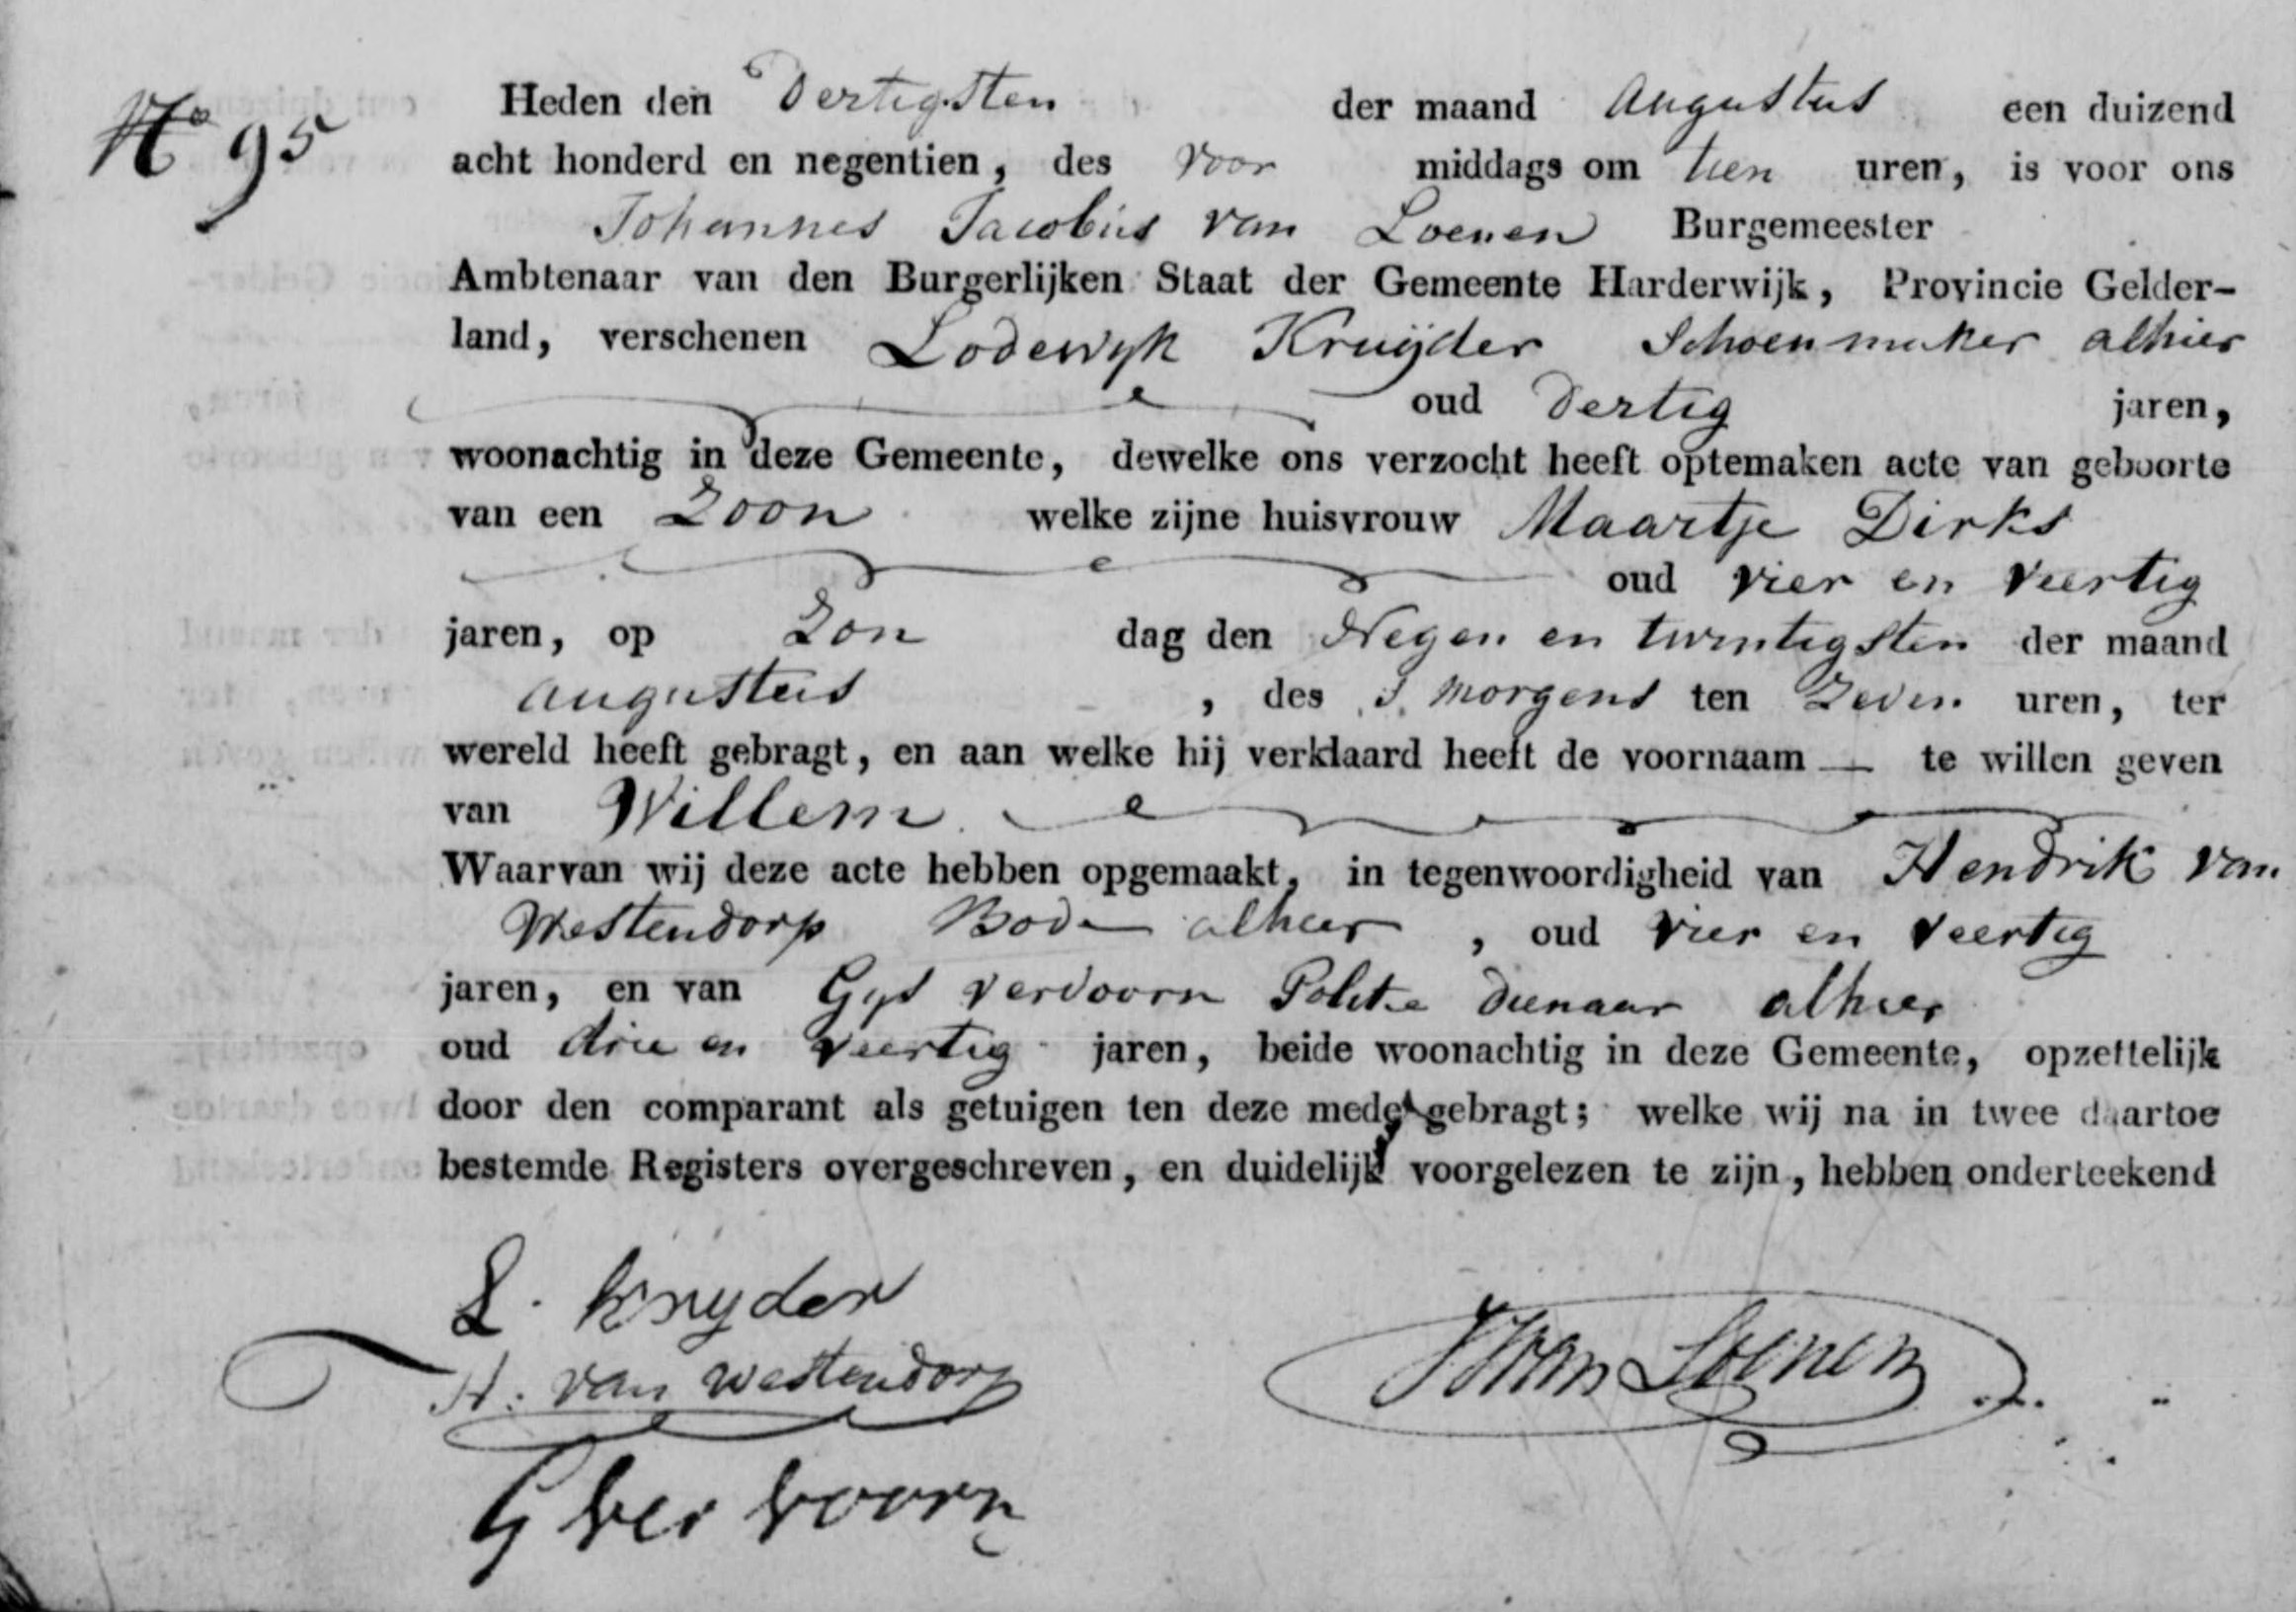 No 95
Heden den Dertigsten der maand Augustus een duizend
acht honderd en negentien, des voor middags om tien uren, is voor ons
Johannes Jacobus van Loenen Burgemeester
Ambtenaar van den Burgerlijken Staat der Gemeente Harderwijk, Provincie Gelder-
land, verschenen Lodewyk Kruijder Schoenmaker alhier
oud Dertig jaren,
woonachtig in deze Gemeente, dewelke ons verzocht heeft optemaken acte van geboorte
van een Zoon welke zijne huisvrouw Maartje Dirks
oud vier en veertig
jaren, op Zon dag den Negen en twintigsten der maand
Augustus, des s morgens ten Zeven uren, ter
wereld heeft gebragt, en aan welke hij verklaard heeft de voornaam — te willen geven
van Willem
Waarvan wij deze acte hebben opgemaakt, in tegenwoordigheid van Hendrik van
Westendorp Bode alhier, oud vier en veertig
jaren, en van Gyst Vervoorn Politie dienaar alhier
oud drie en veertig jaren, beide woonachtig in deze Gemeente, opzettelijk
door den comparant als getuigen ten deze mede gebragt; welke wij na in twee daartoe
bestemde Registers overgeschreven, en duidelijk voorgelezen te zijn, hebben onderteekend
L. kruyder
H. van westendorp
JJvan Loenen
G ver voorn